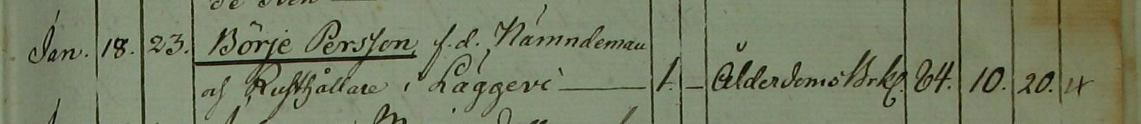 Jan. 18. 23. Börje Persson, f.d. Nämndeman
och Rusthållare i Läggevi — 1. — ÅlderdomsBrkl. 84. 10. 20.